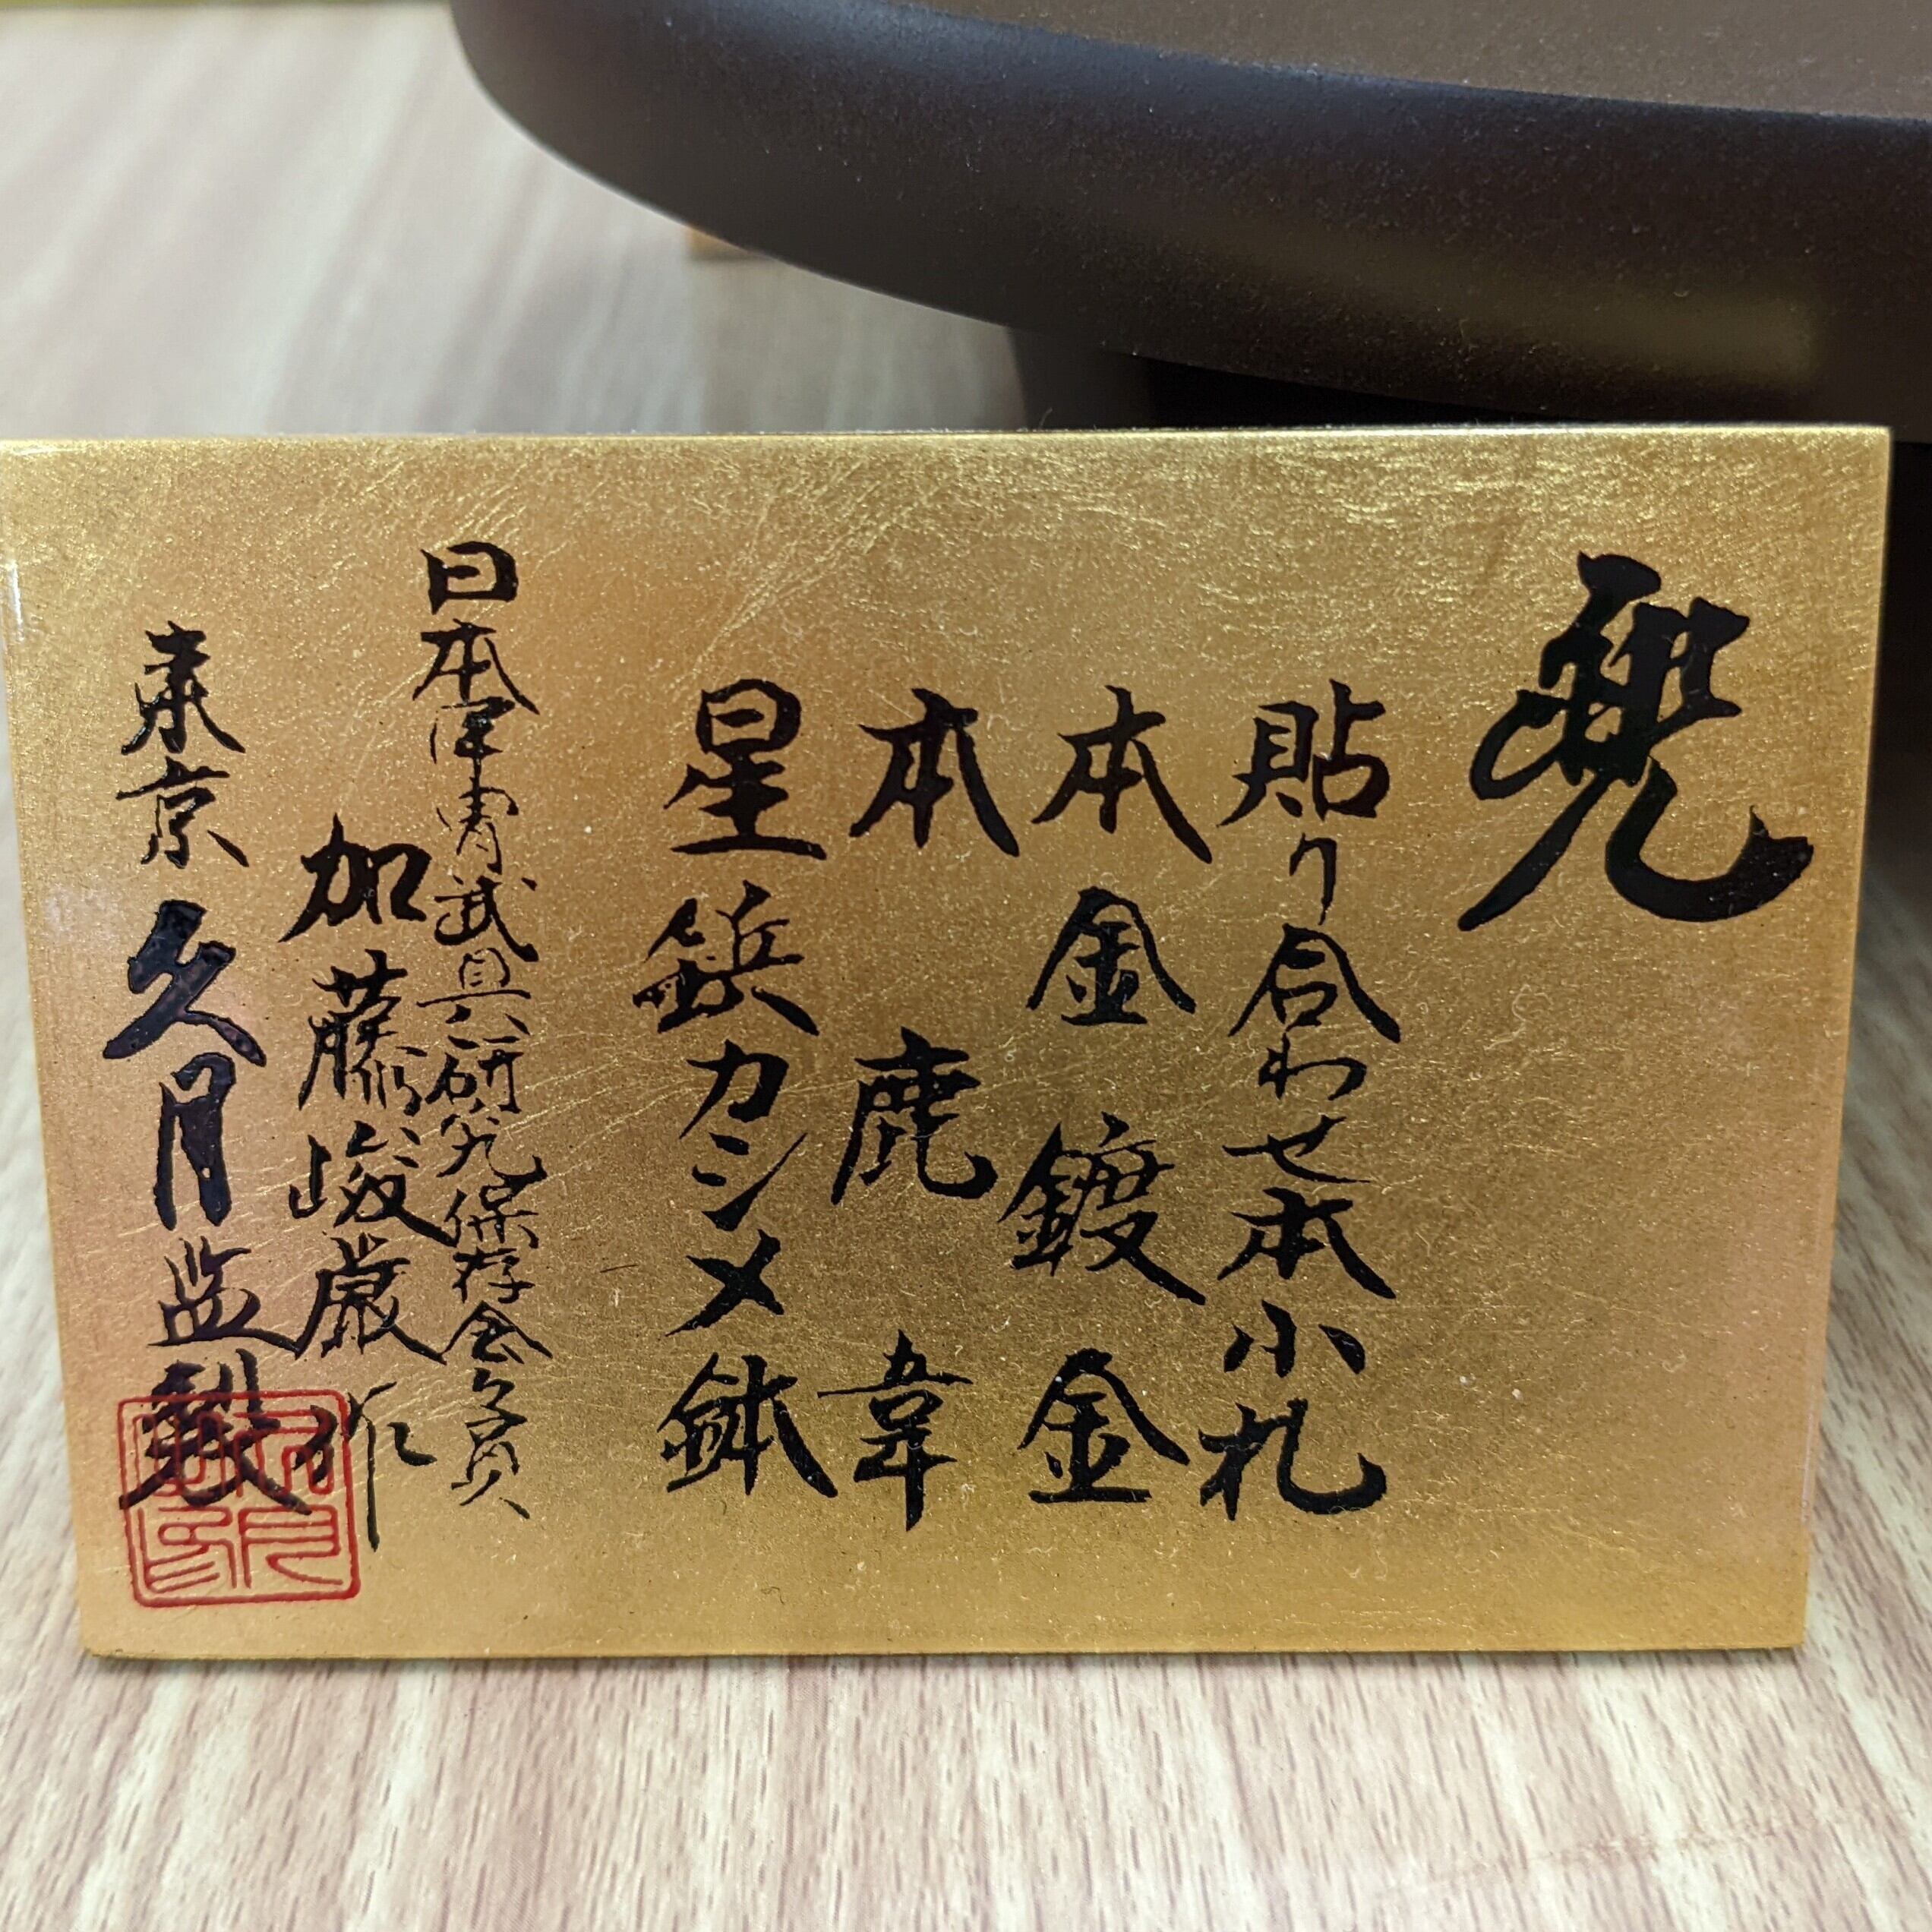 兜
貼り合わせ本小札
本金鍍金
本鹿韋
星鋲カシメ鉢
日本甲冑武具研究保存会会員
加藤峻厳作
東京久月監製
久月之印